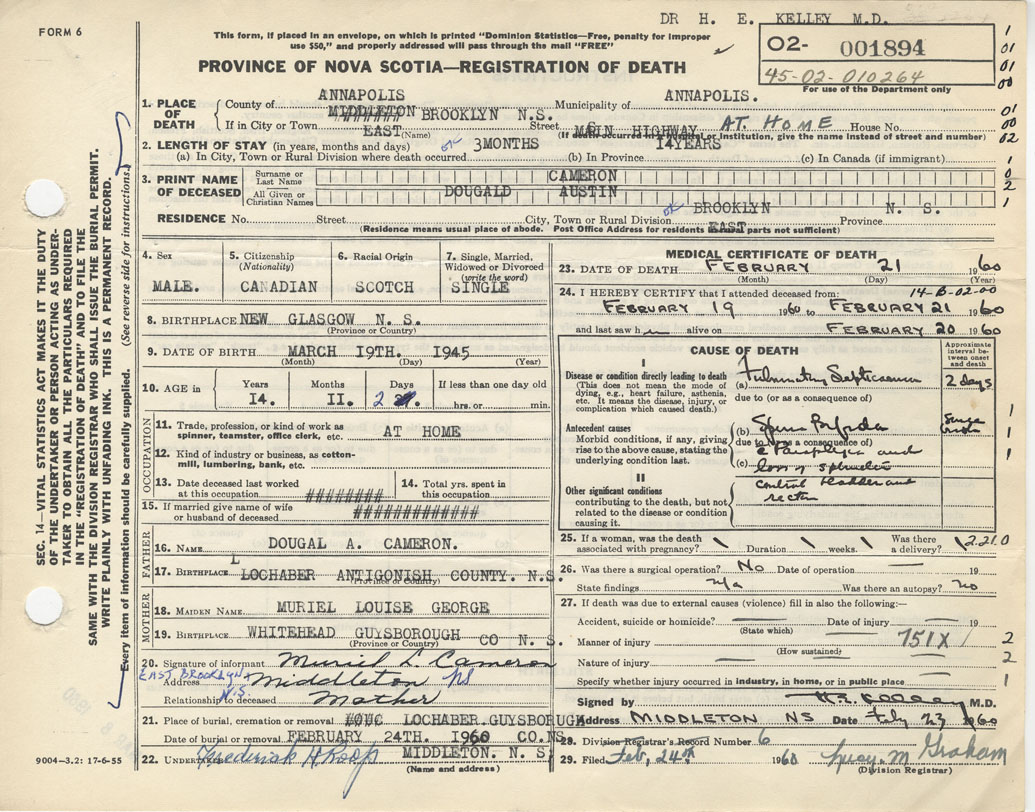 DR H. E. KELLEY M.D.
FORM 6
This form, if placed in an envelope, on which is printed "Dominion Statistics—Free, penalty for improper
use $50," and properly addressed will pass through the mail "FREE"
O2- 001894
45-02-010264
For use of the Department only
PROVINCE OF NOVA SCOTIA—REGISTRATION OF DEATH
1. PLACE OF DEATH
County of ANNAPOLIS Municipality of ANNAPOLIS.
If in City or Town MIDDLETON EAST BROOKLYN N.S. Street MAIN HIGHWAY AT HOME House No.
(Name) (If death occurred in a hospital or Institution, give the name instead of street and number)
2. LENGTH OF STAY (in years, months and days)
(a) In City, Town or Rural Division where death occurred 3MONTHS (b) In Province 14YEARS (c) In Canada (if immigrant)
3. PRINT NAME OF DECEASED
Surname or Last Name CAMERON
All Given or Christian Names DOUGALD AUSTIN
RESIDENCE No. Street City, Town or Rural Division EAST BROOKLYN Province N. S.
(Residence means usual place of abode. Post Office Address for residents is not sufficient)
4. Sex MALE.
5. Citizenship (Nationality) CANADIAN
6. Racial Origin SCOTCH
7. Single, Married, Widowed or Divorced (write the word) SINGLE
8. BIRTHPLACE NEW GLASGOW N. S.
(Province or Country)
9. DATE OF BIRTH MARCH I9TH. I945
(Month) (Day) (Year)
10. AGE in Years I4. Months II. Days 2 If less than one day old hrs. or min.
OCCUPATION
11. Trade, profession, or kind of work as spinner, teamster, office clerk, etc. AT HOME
12. Kind of industry or business, as cotton-mill, lumbering, bank, etc.
13. Date deceased last worked at this occupation ########
14. Total yrs. spent in this occupation
15. If married give name of wife or husband of deceased #############
FATHER
16. NAME DOUGAL A. CAMERON.
17. BIRTHPLACE LOCHABER ANTIGONISH COUNTY. N.S.
(Province or Country)
MOTHER
18. MAIDEN NAME MURIEL LOUISE GEORGE
19. BIRTHPLACE WHITEHEAD GUYSBOROUGH CO N. S.
(Province or Country)
20. Signature of informant Muriel L. Cameron
EAST BROOKLYN N.S.
Address Middleton NS
Relationship to deceased Mother
21. Place of burial, cremation or removal LOCHABER.GUYSBOROUGH
Date of burial or removal FEBRUARY 24TH. 1960 CO.NS.
22. UNDERTAKER Frederick H Roop MIDDLETON. N. S.
(Name and address)
9004—3.2: 17-6-55
MEDICAL CERTIFICATE OF DEATH
23. DATE OF DEATH FEBRUARY 21 1960
(Month) (Day) (Year)
24. I HEREBY CERTIFY that I attended deceased from: 14-B-02-00
FEBRUARY 19 1960 to FEBRUARY 21 1960
and last saw him alive on FEBRUARY 20 1960
CAUSE OF DEATH
Approximate interval between onset and death
I
Disease or condition directly leading to death
(This does not mean the mode of dying, e.g., heart failure, asthenia, etc. It means the disease, injury, or complication which caused death.)
(a) Fulminating Septicaemia 2 days
due to (or as a consequence of)
Antecedent causes
Morbid conditions, if any, giving rise to the above cause, stating the underlying condition last.
(b) Spina Bifida Since
due to (or as a consequence of)
c Paraplegia and
(c) loss of sphincter
II
control bladder and
rectum
Other significant conditions
contributing to the death, but not related to the disease or condition causing it.
25. If a woman, was the death associated with pregnancy? \ Duration \ weeks. \ Was there a delivery? \
26. Was there a surgical operation? No Date of operation 19
State findings n/a Was there an autopsy? no
27. If death was due to external causes (violence) fill in also the following:—
Accident, suicide or homicide? Date of injury 19
(State which)
Manner of injury 751X
(How sustained)
Nature of injury
Specify whether injury occurred in industry, in home, or in public place
Signed by H.E. Kelley M.D.
Address MIDDLETON NS Date Feb 23 1960
28. Division Registrar's Record Number 6
29. Filed Feb, 24th 1960 Lucy. M Graham
(Division Registrar)
SEC. 14—VITAL STATISTICS ACT MAKES IT THE DUTY
OF THE UNDERTAKER OR PERSON ACTING AS UNDER-
TAKER TO OBTAIN ALL THE PARTICULARS REQUIRED
IN THE "REGISTRATION OF DEATH" AND TO FILE THE
SAME WITH THE DIVISION REGISTRAR WHO SHALL ISSUE THE BURIAL PERMIT.
WRITE PLAINLY WITH UNFADING INK. THIS IS A PERMANENT RECORD.
Every item of information should be carefully supplied. (See reverse side for instructions.)